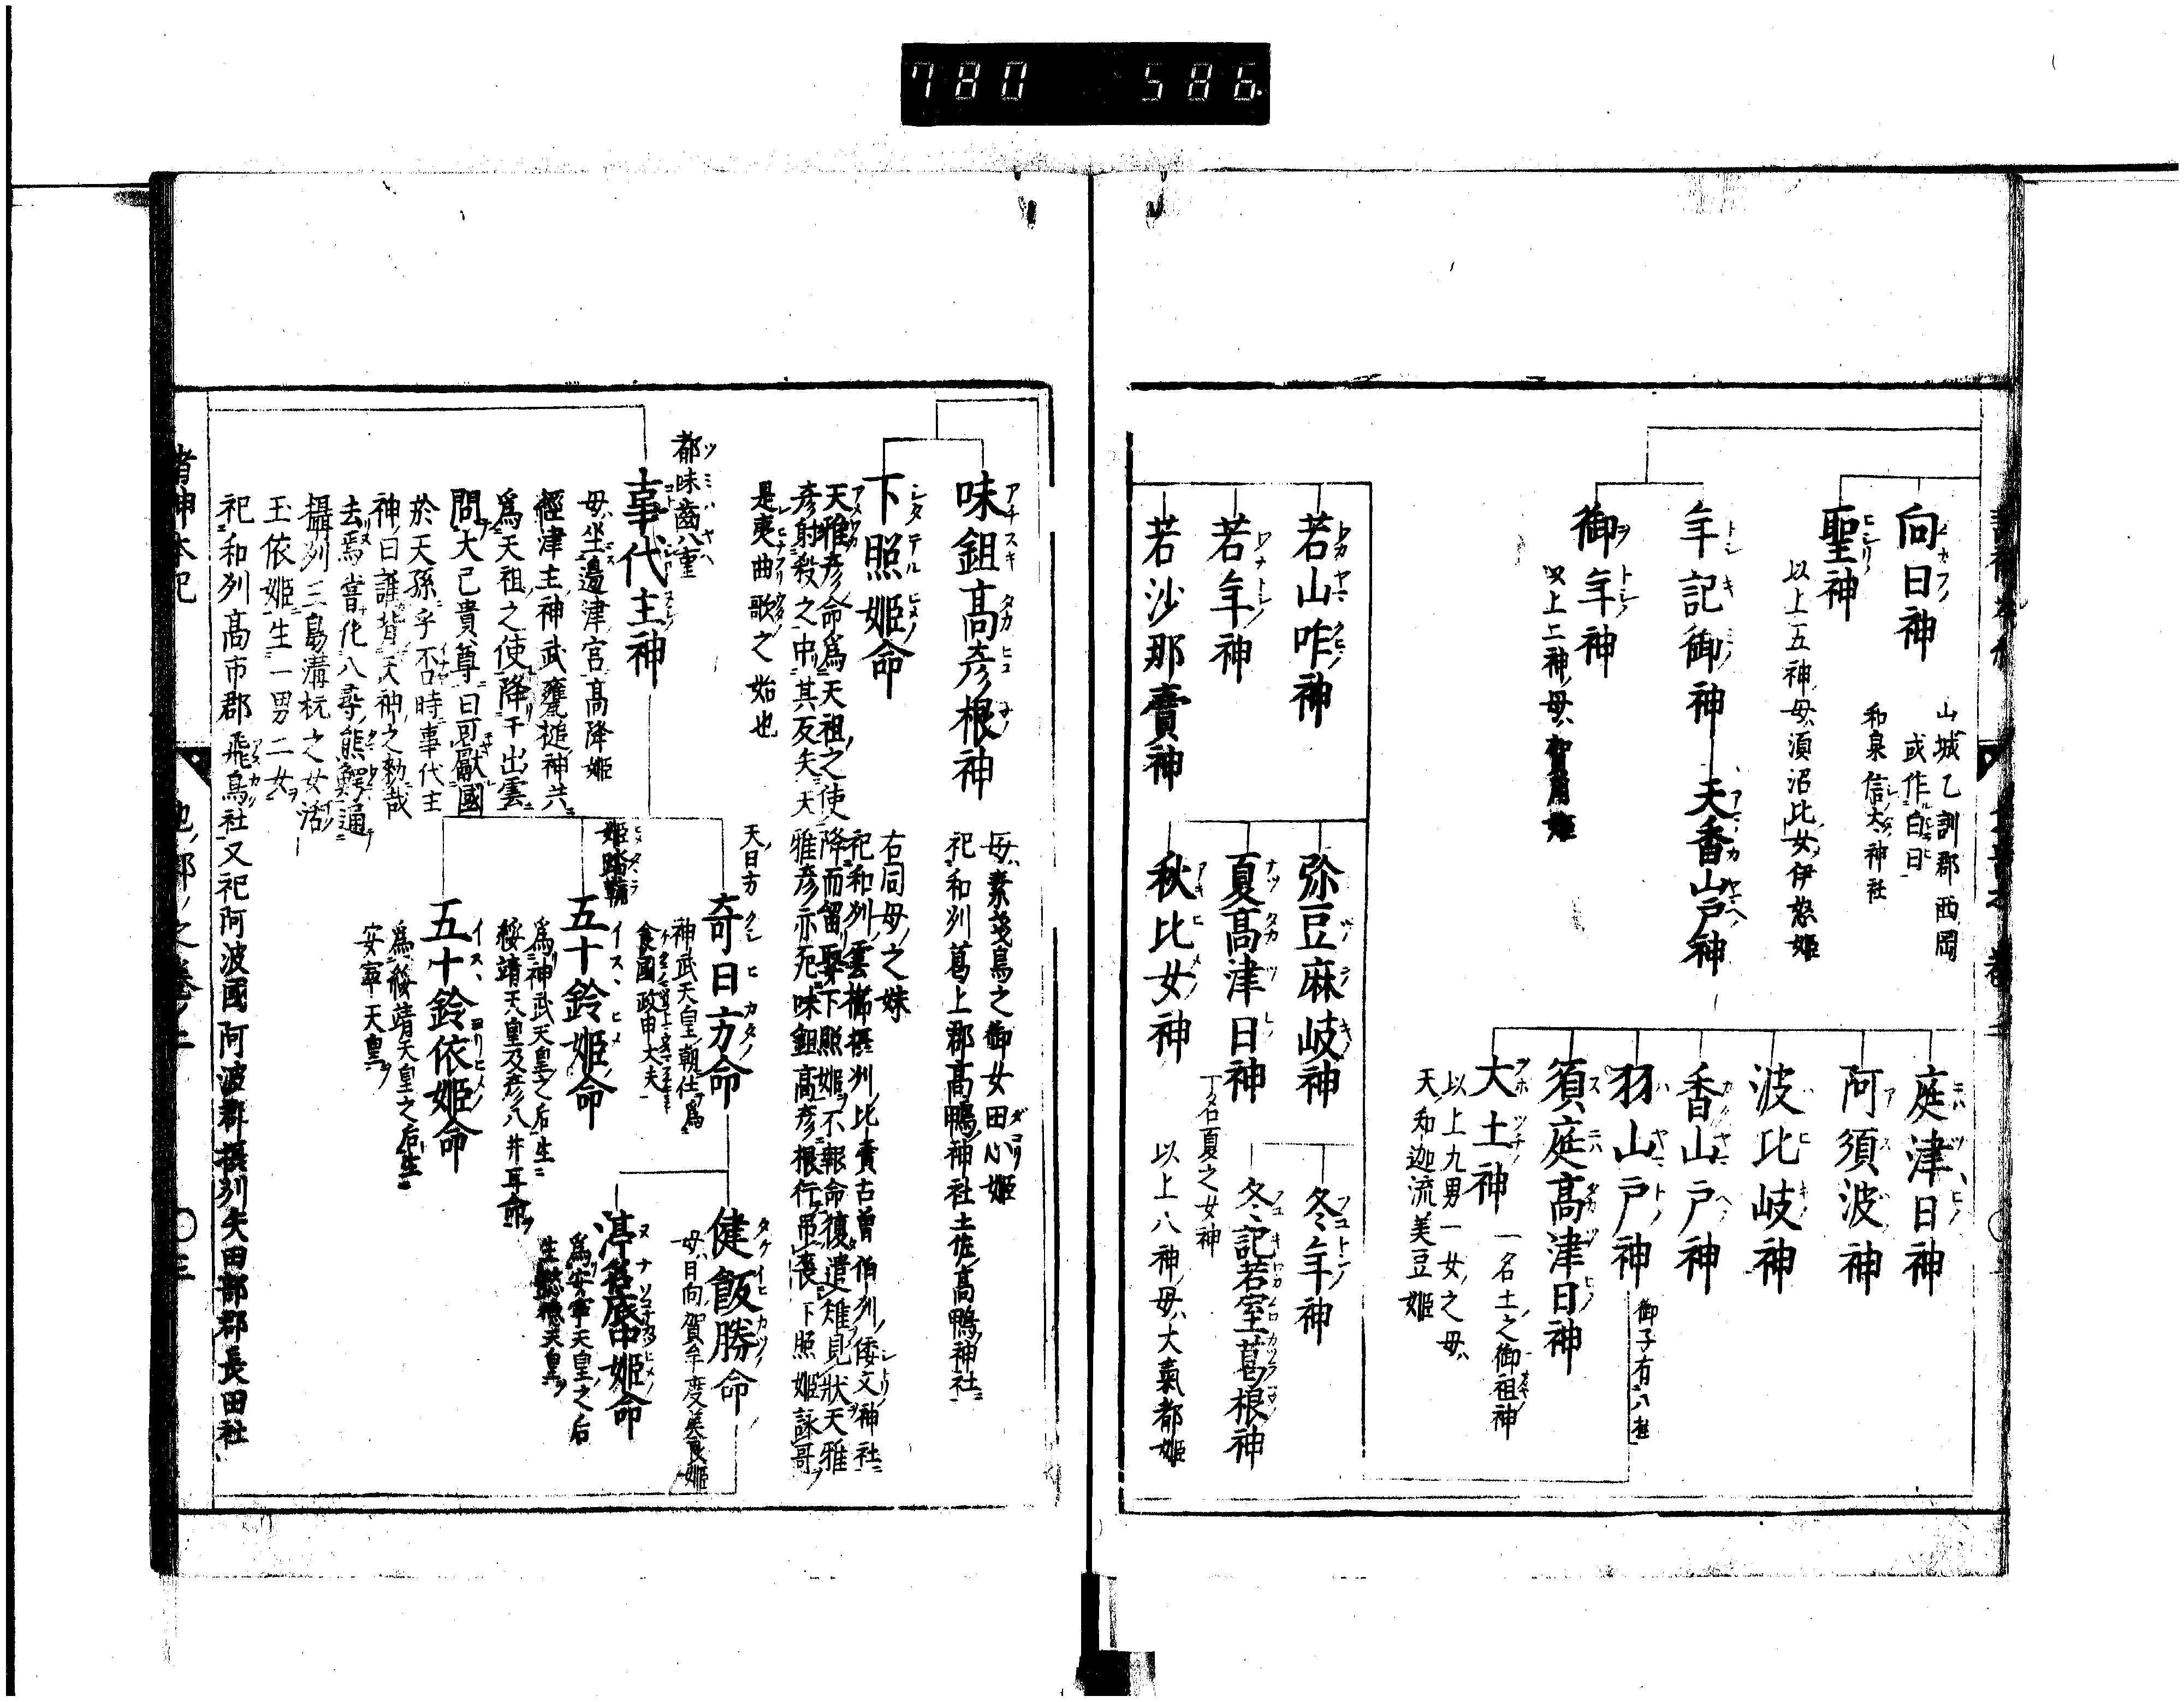 780 586
向日神
山城乙訓郡西岡
或作白日
聖神
和泉信太神社
以上五神ノ母ハ須沼比女ノ伊怒姫
年記御神
天香山戸神
御年神
以上二神ノ母ハ賀用姫
庭津日神
阿須波神
波比岐神
香山戸神
羽山戸神
御子有八柱
須庭高津日神
大土神
一名土之御祖神
以上九男一女ノ之母ハ
天ノ知迦流美豆姫
若山咋神
若年神
若沙那賣神
弥豆麻岐神
夏高津日神
一名夏之女神
秋比女神
冬年神
冬記若室葛根神
以上八神ノ母ハ大氣都姫
味鉏高彦根神
母ハ素戔烏之御女田心姫
祀和州葛上郡高鴨神社土佐高鴨神社
下照姫命
右同母ノ之妹
祀和州雲櫛攝州比賣古曽伯州倭文神社
天雅彦命爲天祖之使降而留娶下照姫不報命復遣雉見狀天雅
彦射殺之中其反矢天雅彦亦死味鉏高彦根行吊喪下照姫詠哥
是夷曲歌之始也
都味齒八重
事代主神
母ハ坐邊津宮高降姫
經津主神武甕槌神共
爲天祖之使降于出雲
問大已貴尊曰可獻國
於天孫乎不時事代主
神曰誰背天神之勅哉
去焉嘗化八尋熊鰐通
攝州三島溝杭之女活
玉依姫生一男二女
祀和州高市郡飛鳥社又祀阿波國阿波郡攝州矢田部郡長田社
天日方
奇日方命
神武天皇朝仕爲
食國政申大夫
姫蹈鞴
五十鈴姫命
爲神武天皇之后生
綏靖天皇及彦八井耳命
五十鈴依姫命
爲綏靖天皇之后生
安寧天皇
健飯勝命
母ハ日向賀牟度美良姫
渟名底中姫命
爲安寧天皇之后
生懿德天皇
諸神本紀
地ノ部ノ之巻ノ二
〇三